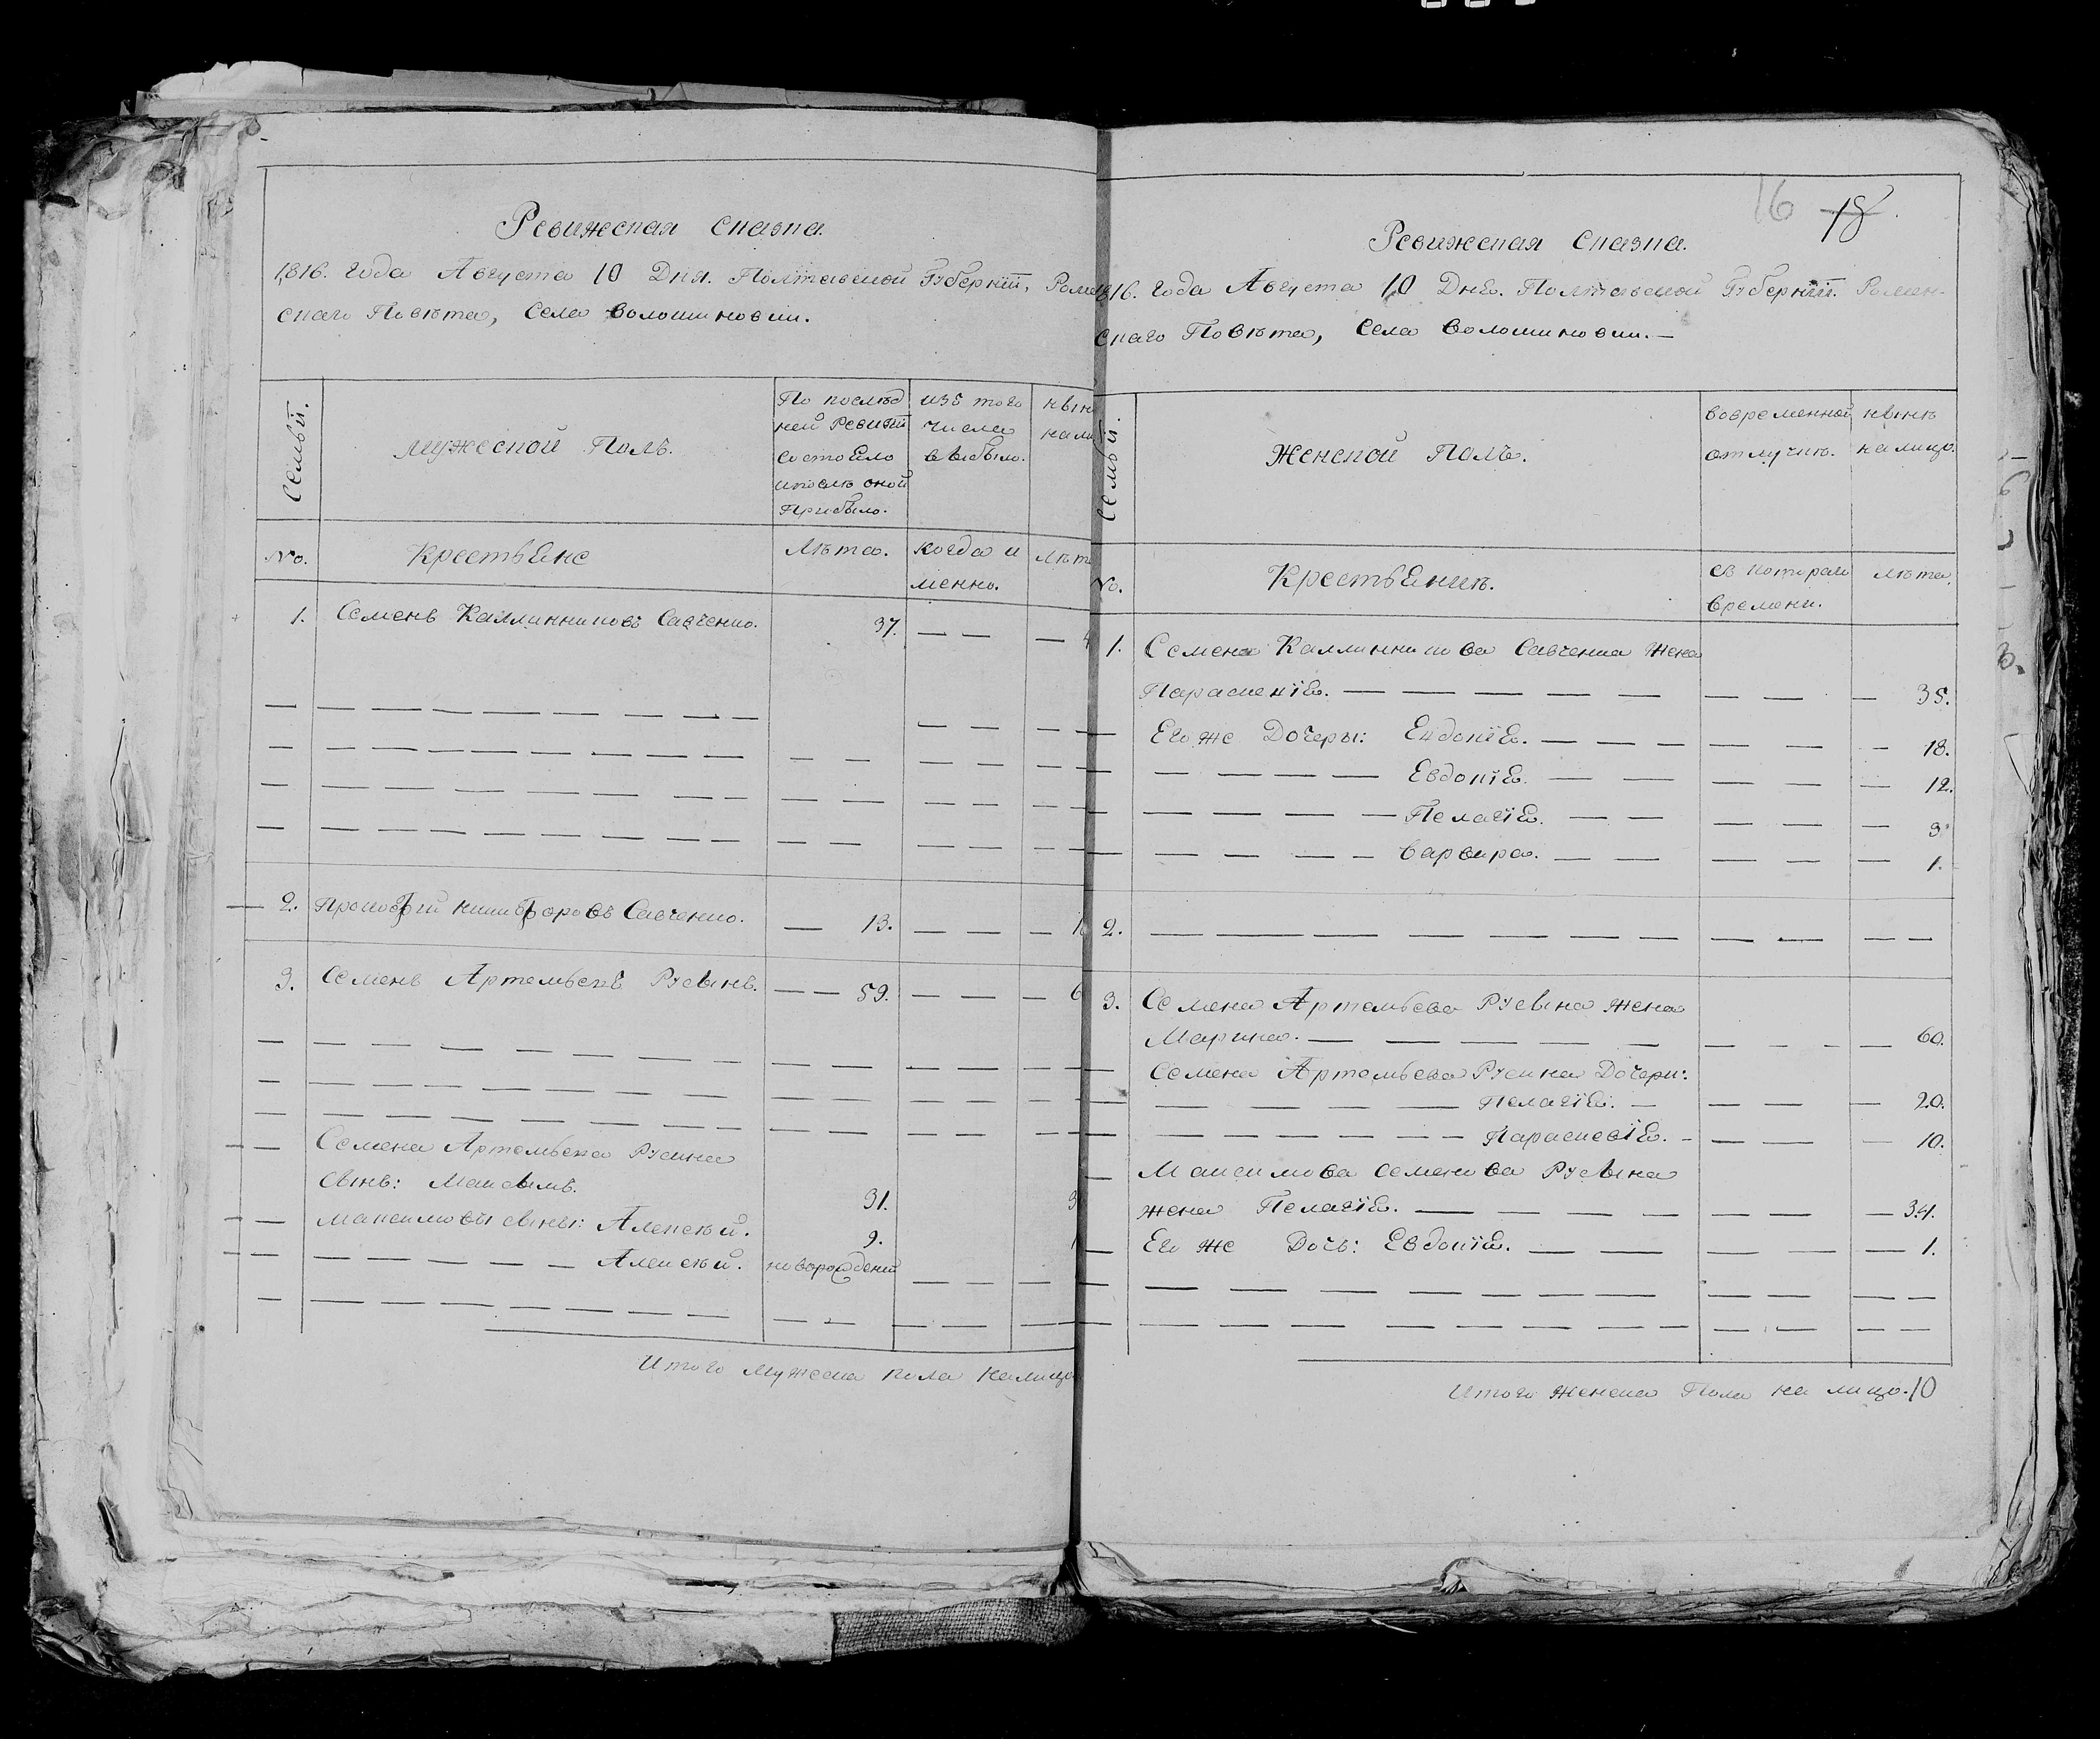 Ревижская сказка.
1816. года Августа 10 Дня. Полтавской Губерніи, Ромен
скаго Повѣта, Села Волошиновки.
Семьи.
Мужеской Полъ.
По послѣд
ней Ревизіи
состояло
и послѣ оной
Прибыло.
изъ того
числа
выбыло.
нын
нали
No.
Крестьяне
Лѣта.
когда и
менно.
лѣт
1. Семенъ Каллинниковъ Савченко. 37. — — — 4
— 2. Прокофій Никифоровъ Савченко. — 13. — — — 1
3. Семенъ Артемьевъ Русынъ. — — 59. — — — 6
— — Семена Артемьева Русина
сынъ: Максымъ. 31. 3
— — Максимовы сыны: Алексѣй. 9. 1
— — — — — — — Алексѣй. новорожденный — — —
Итого мужеска пола налицо
16 18
Ревижская Сказка.
1816. года Августа 10 Дня. Полтавской Губерніи. Ромен-
скаго Повѣта, Села Волошиновки. —
Семьи.
Женской Полъ.
во временной
отлучкѣ.
нынѣ
на лицо.
No.
Крестьяникъ.
съ котораго
времени.
лѣта.
1. Семена Каллинникова Савченка Жена
Параскевія. — — — — — — — — 35.
Его же Дочеры: Евдокія. — — — — — — — 18.
— — — — — Евдокія. — — — — — 12.
— — — — — Пелагія. — — — — — 3.
— — — — — Варвара. — — — — — 1.
2. — — — — — — — — — — — —
3. Семена Артемьева Русына жена
Марина. — — — — — — — — — 60.
Семена Артемьева Русина Дочери:
— — — — Пелагія. — — — — 20.
— — — — — — — Параскевія. - — — — 10.
— Максимова Семенова Русына
жена Пелагія. — — — — — — — — 34.
— Его же Дочь: Евдокія. — — — — — 1.
Итого женска Пола на лицо. 10